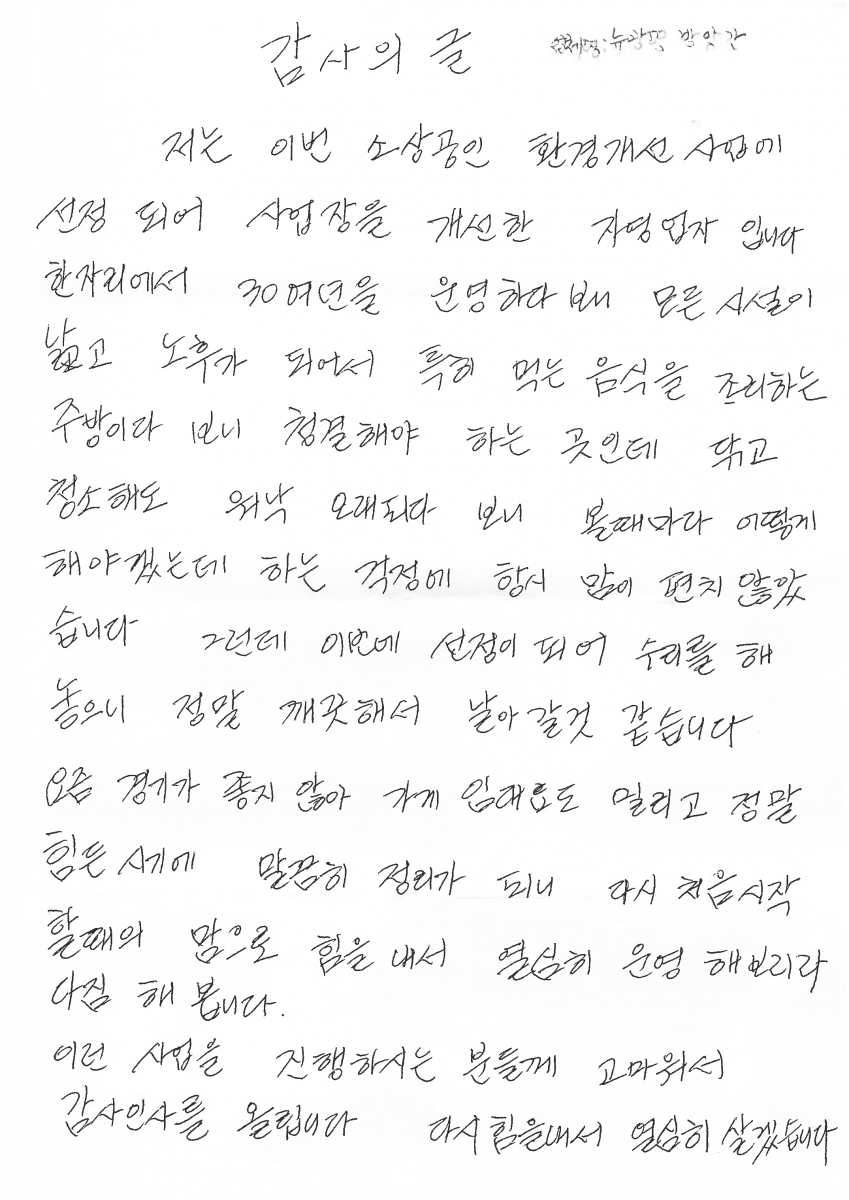 감사의 글
업체명: 뉴광명 방앗간
저는 이번 소상공인 환경개선 사업에
선정 되어 사업장을 개선한 자영업자 입니다
한자리에서 30여년을 운영하다 보니 모든 시설이
낡고 노후가 되어서 특히 먹는 음식을 조리하는
주방이다 보니 청결해야 하는 곳인데 닦고
청소해도 워낙 오래되다 보니 볼때마다 어떻게
해야겠는데 하는 걱정에 항시 맘이 편치 않았
습니다 그런데 이번에 선정이 되어 수리를 해
놓으니 정말 깨끗해서 날아갈것 같습니다
요즘 경기가 좋지 않아 가게 임대료도 밀리고 정말
힘든 시기에 말끔히 정리가 되니 다시 처음시작
할때의 맘으로 힘을 내서 열심히 운영 해보리라
다짐 해 봅니다.
이런 사업을 진행하시는 분들께 고마워서
감사인사를 올립니다 다시 힘을내서 열심히 살겠습니다